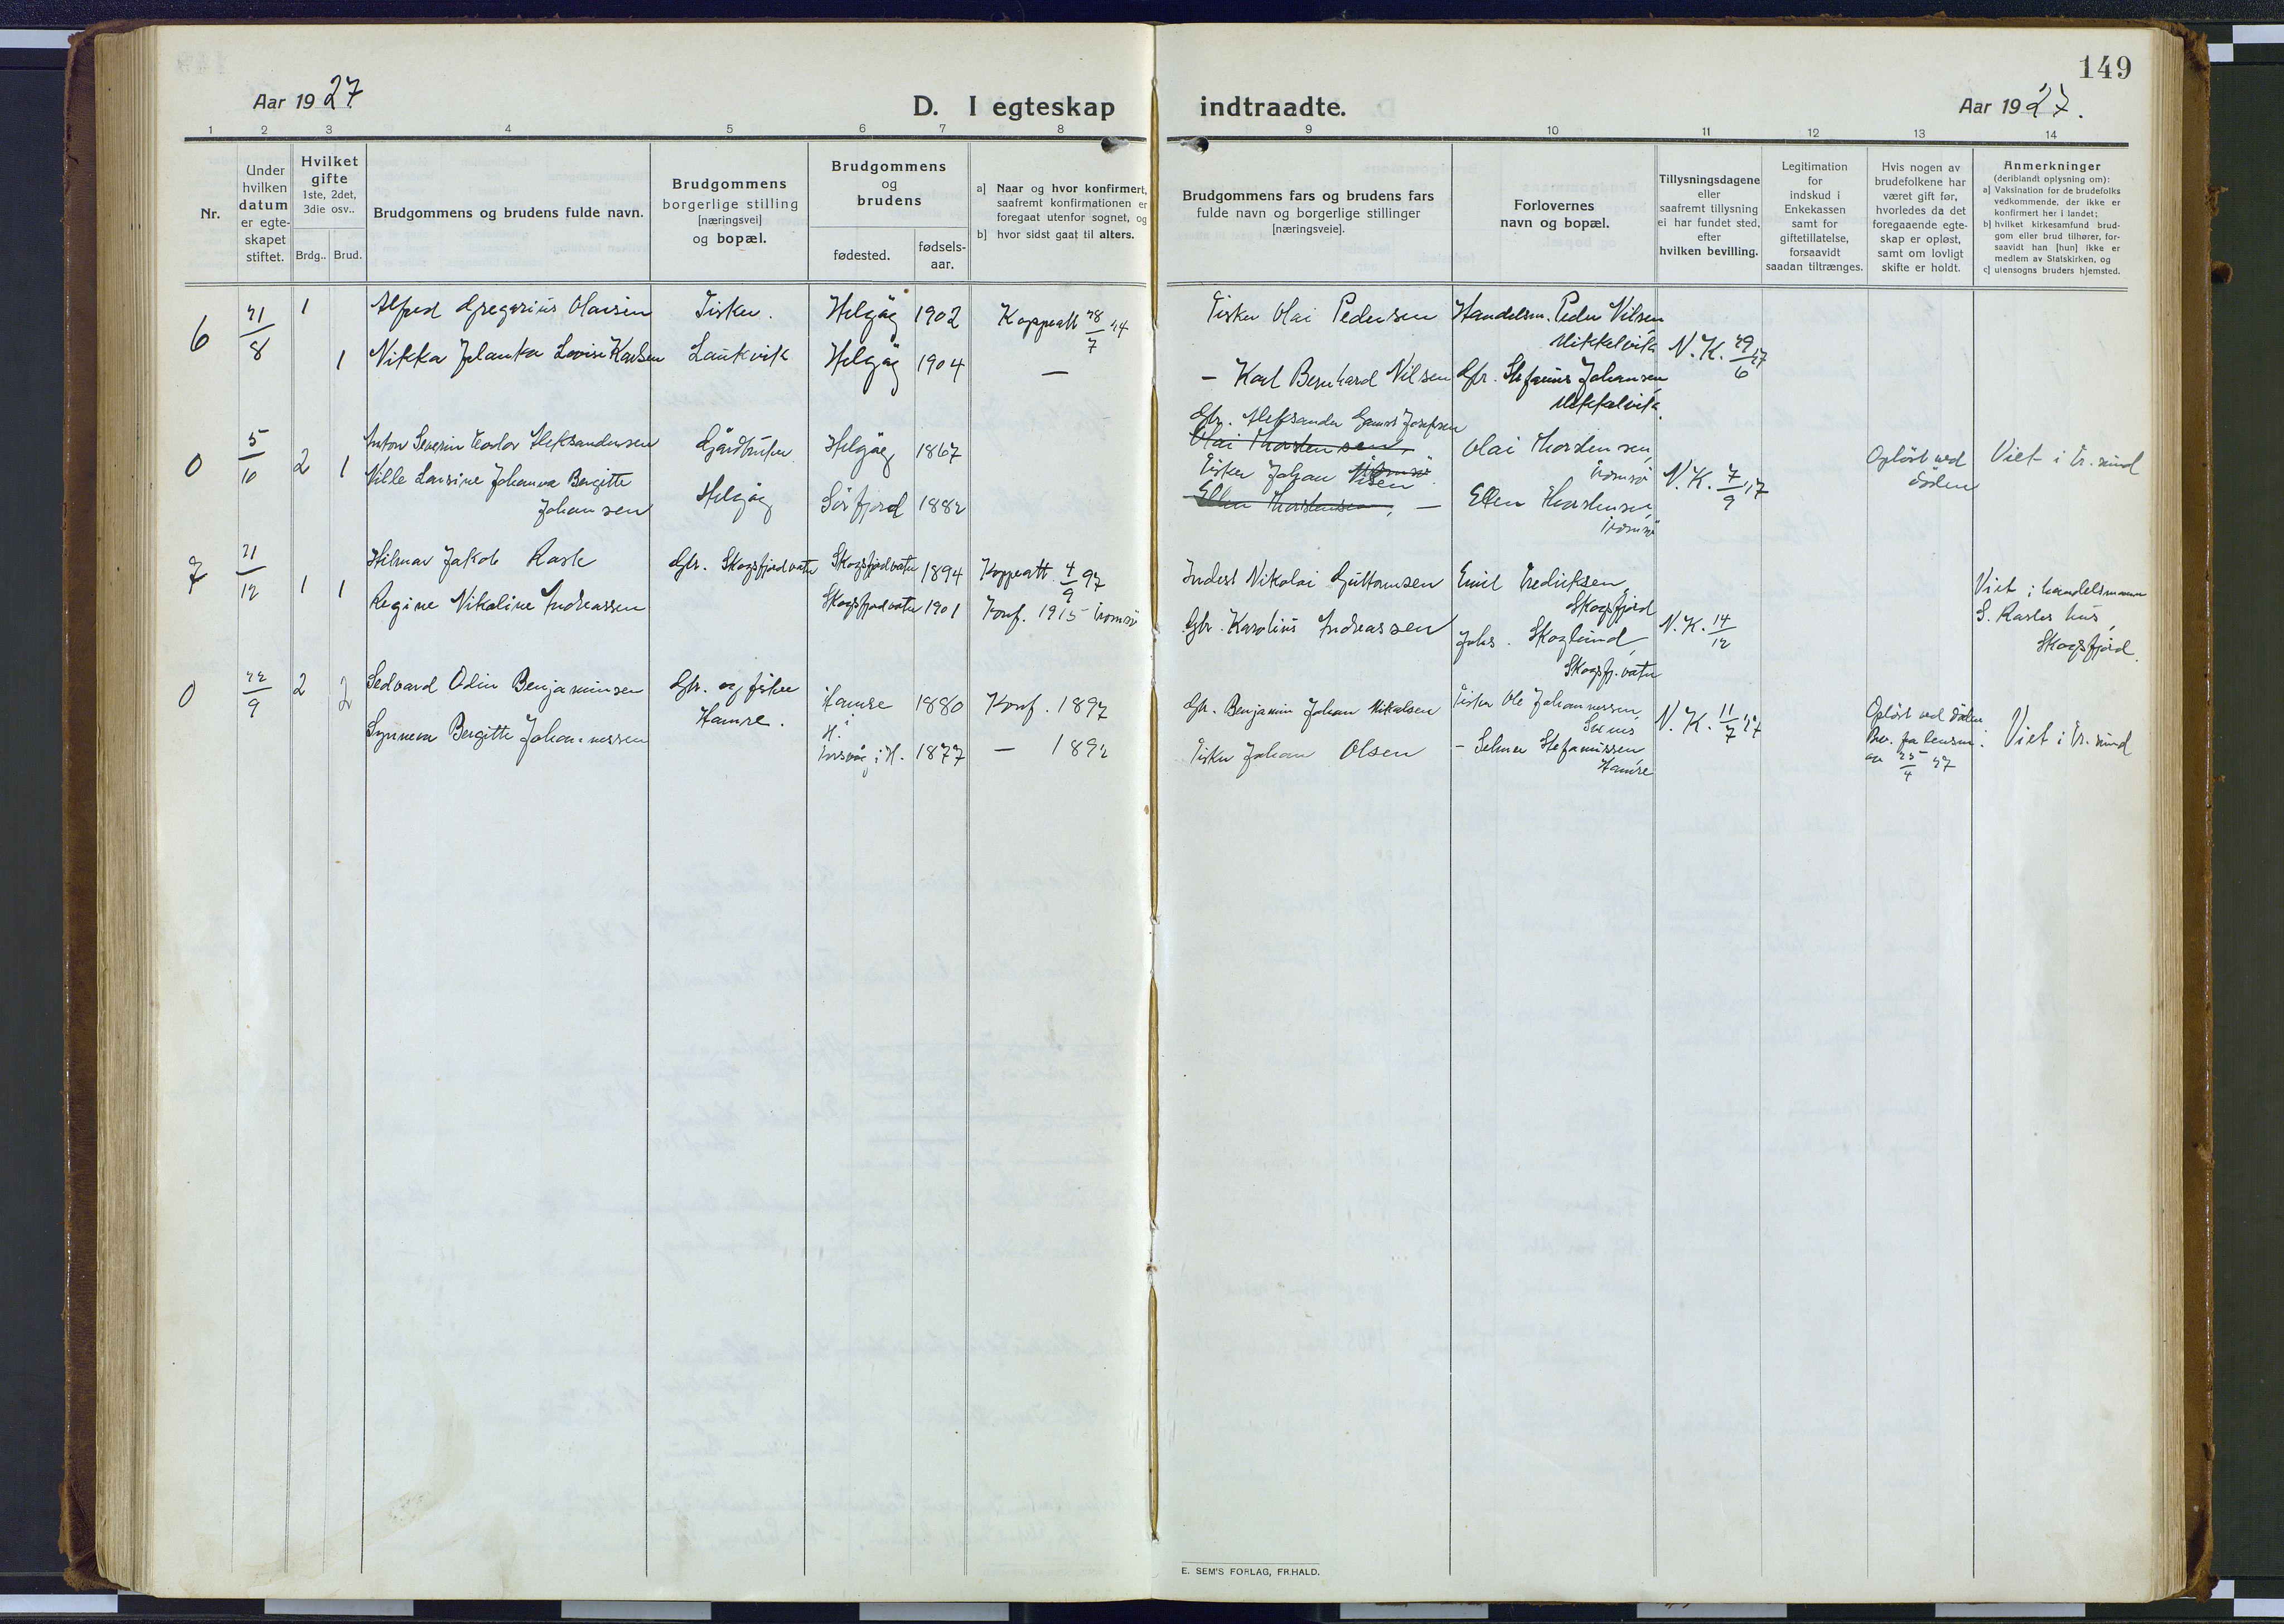 149
Aar 1927
D. I egteskap indtraadte.
Aar 1927.
1 2 3 4 5 6 7 8 9 10 11 12 13 14
Nr.
Under
hvilken
datum
er egte-
skapet
stiftet.
Hvilket
gifte
1ste, 2det,
3die osv..
Brdg.. Brud.
Brudgommens og brudens fulde navn.
Brudgommens
borgerlige stilling
[næringsvei]
og bopæl.
Brudgommens
og
brudens
fødested.
fødsels-
aar.
a] Naar og hvor konfirmert,
saafremt konfirmationen er
foregaat utenfor sognet, og
b] hvor sidst gaat til alters.
Brudgommens fars og brudens fars
fulde navn og borgerlige stillinger
[næringsveie].
Forlovernes
navn og bopæl.
Tillysningsdagene
eller
saafremt tillysning
ei har fundet sted,
efter
hvilken bevilling.
Legitimation
for
indskud i
Enkekassen
samt for
giftetillatelse,
forsaavidt
saadan tiltrænges.
Hvis nogen av
brudefolkene har
været gift før,
hvorledes da det
foregaaende egte-
skap er opløst,
samt om lovligt
skifte er holdt.
Anmerkninger
(deriblandt oplysning om):
a] Vaksination for de brudefolks
vedkommende, der ikke er
konfirmert her i landet;
b] hvilket kirkesamfund brud-
gom eller brud tilhører, for-
saavidt han [hun] ikke er
medlem av Statskirken, og
c] utensogns bruders hjemsted.
6 21/8 1 Alfred Gregorius Olaisen Fisker. Helgøy 1902 Koppeatt 28/7 14 Fisker Olai Pedersen Handelsm. Peder Nilsen
Mikkelvik
1 Nikka Jolanka Lovise Karlsen Laukvik Helgøy 1904 — N.K. 29/6 27
— Karl Bernhard Nilsen Gbr. Stefanus Johansen
Mikkelvik
Gbr. Aleksander Josefsen
0 5/10 2 1 Anton Severin Teodor Aleksandersen Gårdbruker Helgøy 1867 Olai Thorstensen, Olai Thorstensen, Opløst ved Viet i Tr.sund
Tromsø døden
Nille Lousine Johanna Bergitte Fisker Johan Olsen N.K. 7/9 27
Johansen Helgøy Sørfjord 1882 Ellen Thorstensen, — Ellen Thorstensen,
Tromsø
7 21/12 1 1 Hilmar Jakob Rask Gbr. Skogsfjordvatn Skogsfjordvatn 1894 Koppeatt. 4/9 97 Inderst Nikolai Guttormsen Emil Fredriksen,
Skogsfjord
Regine Nikoline Andreassen Skogsfjordvatn 1901 Konf. 1915 Tromsø Gbr. Karolius Andreassen Johs. Skoglund,
Skogsfj.vatn
N.K. 14/12
Viet i handelsmann
S. Rasks hus,
Skogsfjord.
0 22/9 2 2 Sedvard Odin Benjaminsen Gbr. og fisker Hamre 1880 Konf. 1897 Gbr. Benjamin Johan Mikalsen Fisker Ole Johannessen,
i
Hamre. H.
N.K. 11/7 27
Opløst ved døden
Viet i Tr.sund
Synneva Bergitte Johannessen Torsvåg i H. 1877 — 1892 Fisker Johan Olsen — Selmer Stefanussen
Hamre
25/4 27
E. SEM'S FORLAG, FR.HALD.